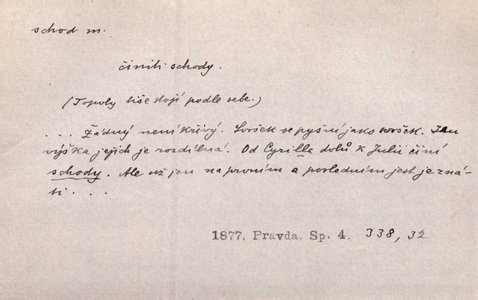 schod m.
činiti schody.
(Topoly tiše stojí podle sebe.)
. . . Žádný není křivý. Svršek se pyšní jako svršek. Jen
výška jejich je rozdílná. Od Cyrilla dolů k Julii činí
schody. Ale už jen na prvním a posledním jest je zná-
ti . . .
1877, Pravda. Sp. 4. 338, 32